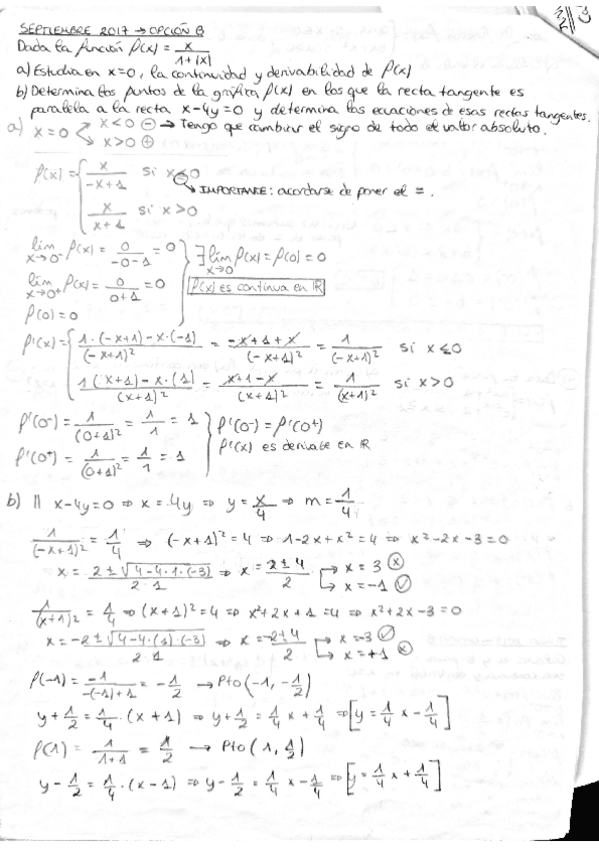 2/3
SEPTIEMBRE 2017 → OPCIÓN B
Dada la función f(x) = x/(1+|x|)
a) Estudia en x=0, la continuidad y derivabilidad de f(x)
b) Determina los puntos de la gráfica f(x) en los que la recta tangente es
paralela a la recta x-4y=0 y determina las ecuaciones de esas rectas tangentes.
a) x=0 x<0 ⊖ → Tengo que cambiar el signo de todo el valor absoluto.
x>0 ⊕
f(x) = { x/(-x+1) si x≤0
→ IMPORTANTE: acordarse de poner el =.
x/(x+1) si x>0
lim x→0⁻ f(x) = 0/(-0-1) = 0
lim x→0⁺ f(x) = 0/(0+1) = 0
f(0) = 0
∃ lim x→0 f(x) = f(0) = 0
f(x) es continua en ℝ
f'(x) = { (1·(-x+1)-x·(-1))/(-x+1)² = (-x+1+x)/(-x+1)² = 1/(-x+1)² si x≤0
(1(x+1)-x·(1))/(x+1)² = (x+1-x)/(x+1)² = 1/(x+1)² si x>0
f'(0⁻) = 1/(0+1)² = 1/1 = 1
f'(0⁺) = 1/(0+1)² = 1/1 = 1
f'(0⁻) = f'(0⁺)
f'(x) es derivable en ℝ
b) || x-4y=0 ⇒ x=4y ⇒ y = x/4 ⇒ m = 1/4
1/(-x+1)² = 1/4 ⇒ (-x+1)² = 4 ⇒ 1-2x+x² = 4 ⇒ x²-2x-3=0
x = (2±√(4-4·1·(-3)))/(2·1) ⇒ x = (2±4)/2 → x=3 ⊗
→ x=-1 ✓
1/(x+1)² = 1/4 ⇒ (x+1)² = 4 ⇒ x²+2x+1 = 4 ⇒ x²+2x-3=0
x = (-2±√(4-4·(1)·(-3)))/(2·1) ⇒ x = (-2±4)/2 → x=-3 ✓
→ x=+1 ⊗
f(-1) = -1/(-(-1)+1) = -1/2 → Pto(-1, -1/2)
y+1/2 = 1/4·(x+1) ⇒ y+1/2 = 1/4 x+1/4 ⇒ [y = 1/4 x - 1/4]
f(1) = 1/(1+1) = 1/2 → Pto(1, 1/2)
y-1/2 = 1/4·(x-1) ⇒ y-1/2 = 1/4 x-1/4 ⇒ [y = 1/4 x + 1/4]